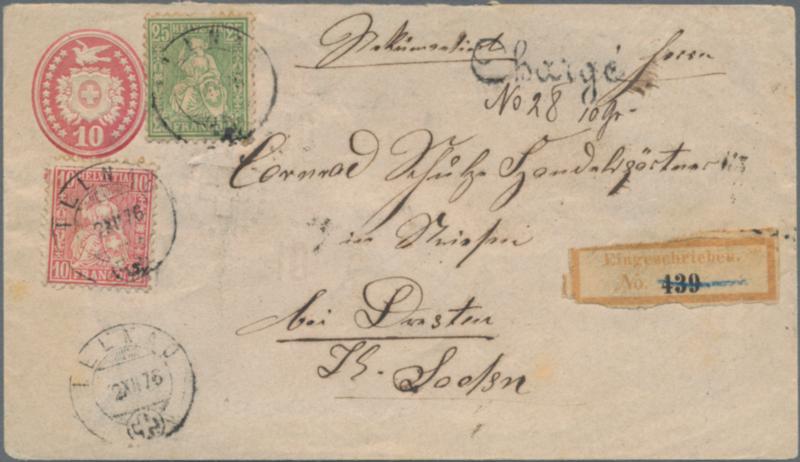 10
25 HELVETIA 25
FRANCO
Rekommandirt
Chargé
Herrn
No 28 10 Gr.
Conrad Schulze Handelsgärtner
10 HELVETIA 10
2 XII 76
10 FRANCO
in Striesen
Eingeschrieben.
No. 439
bei Dresden
ILLNAU
2 XII 76